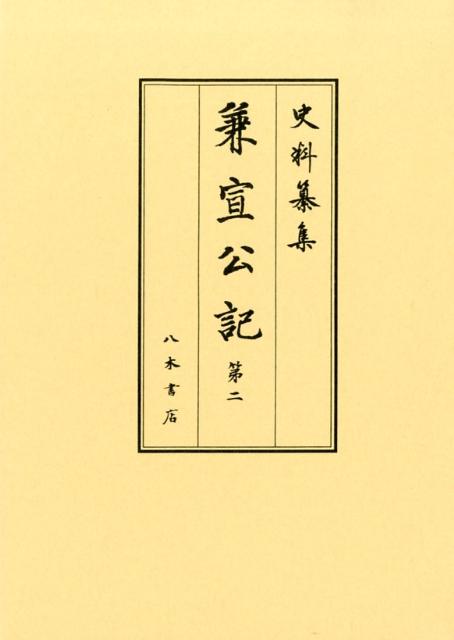 史料纂集
兼宣公記 第二
八木書店